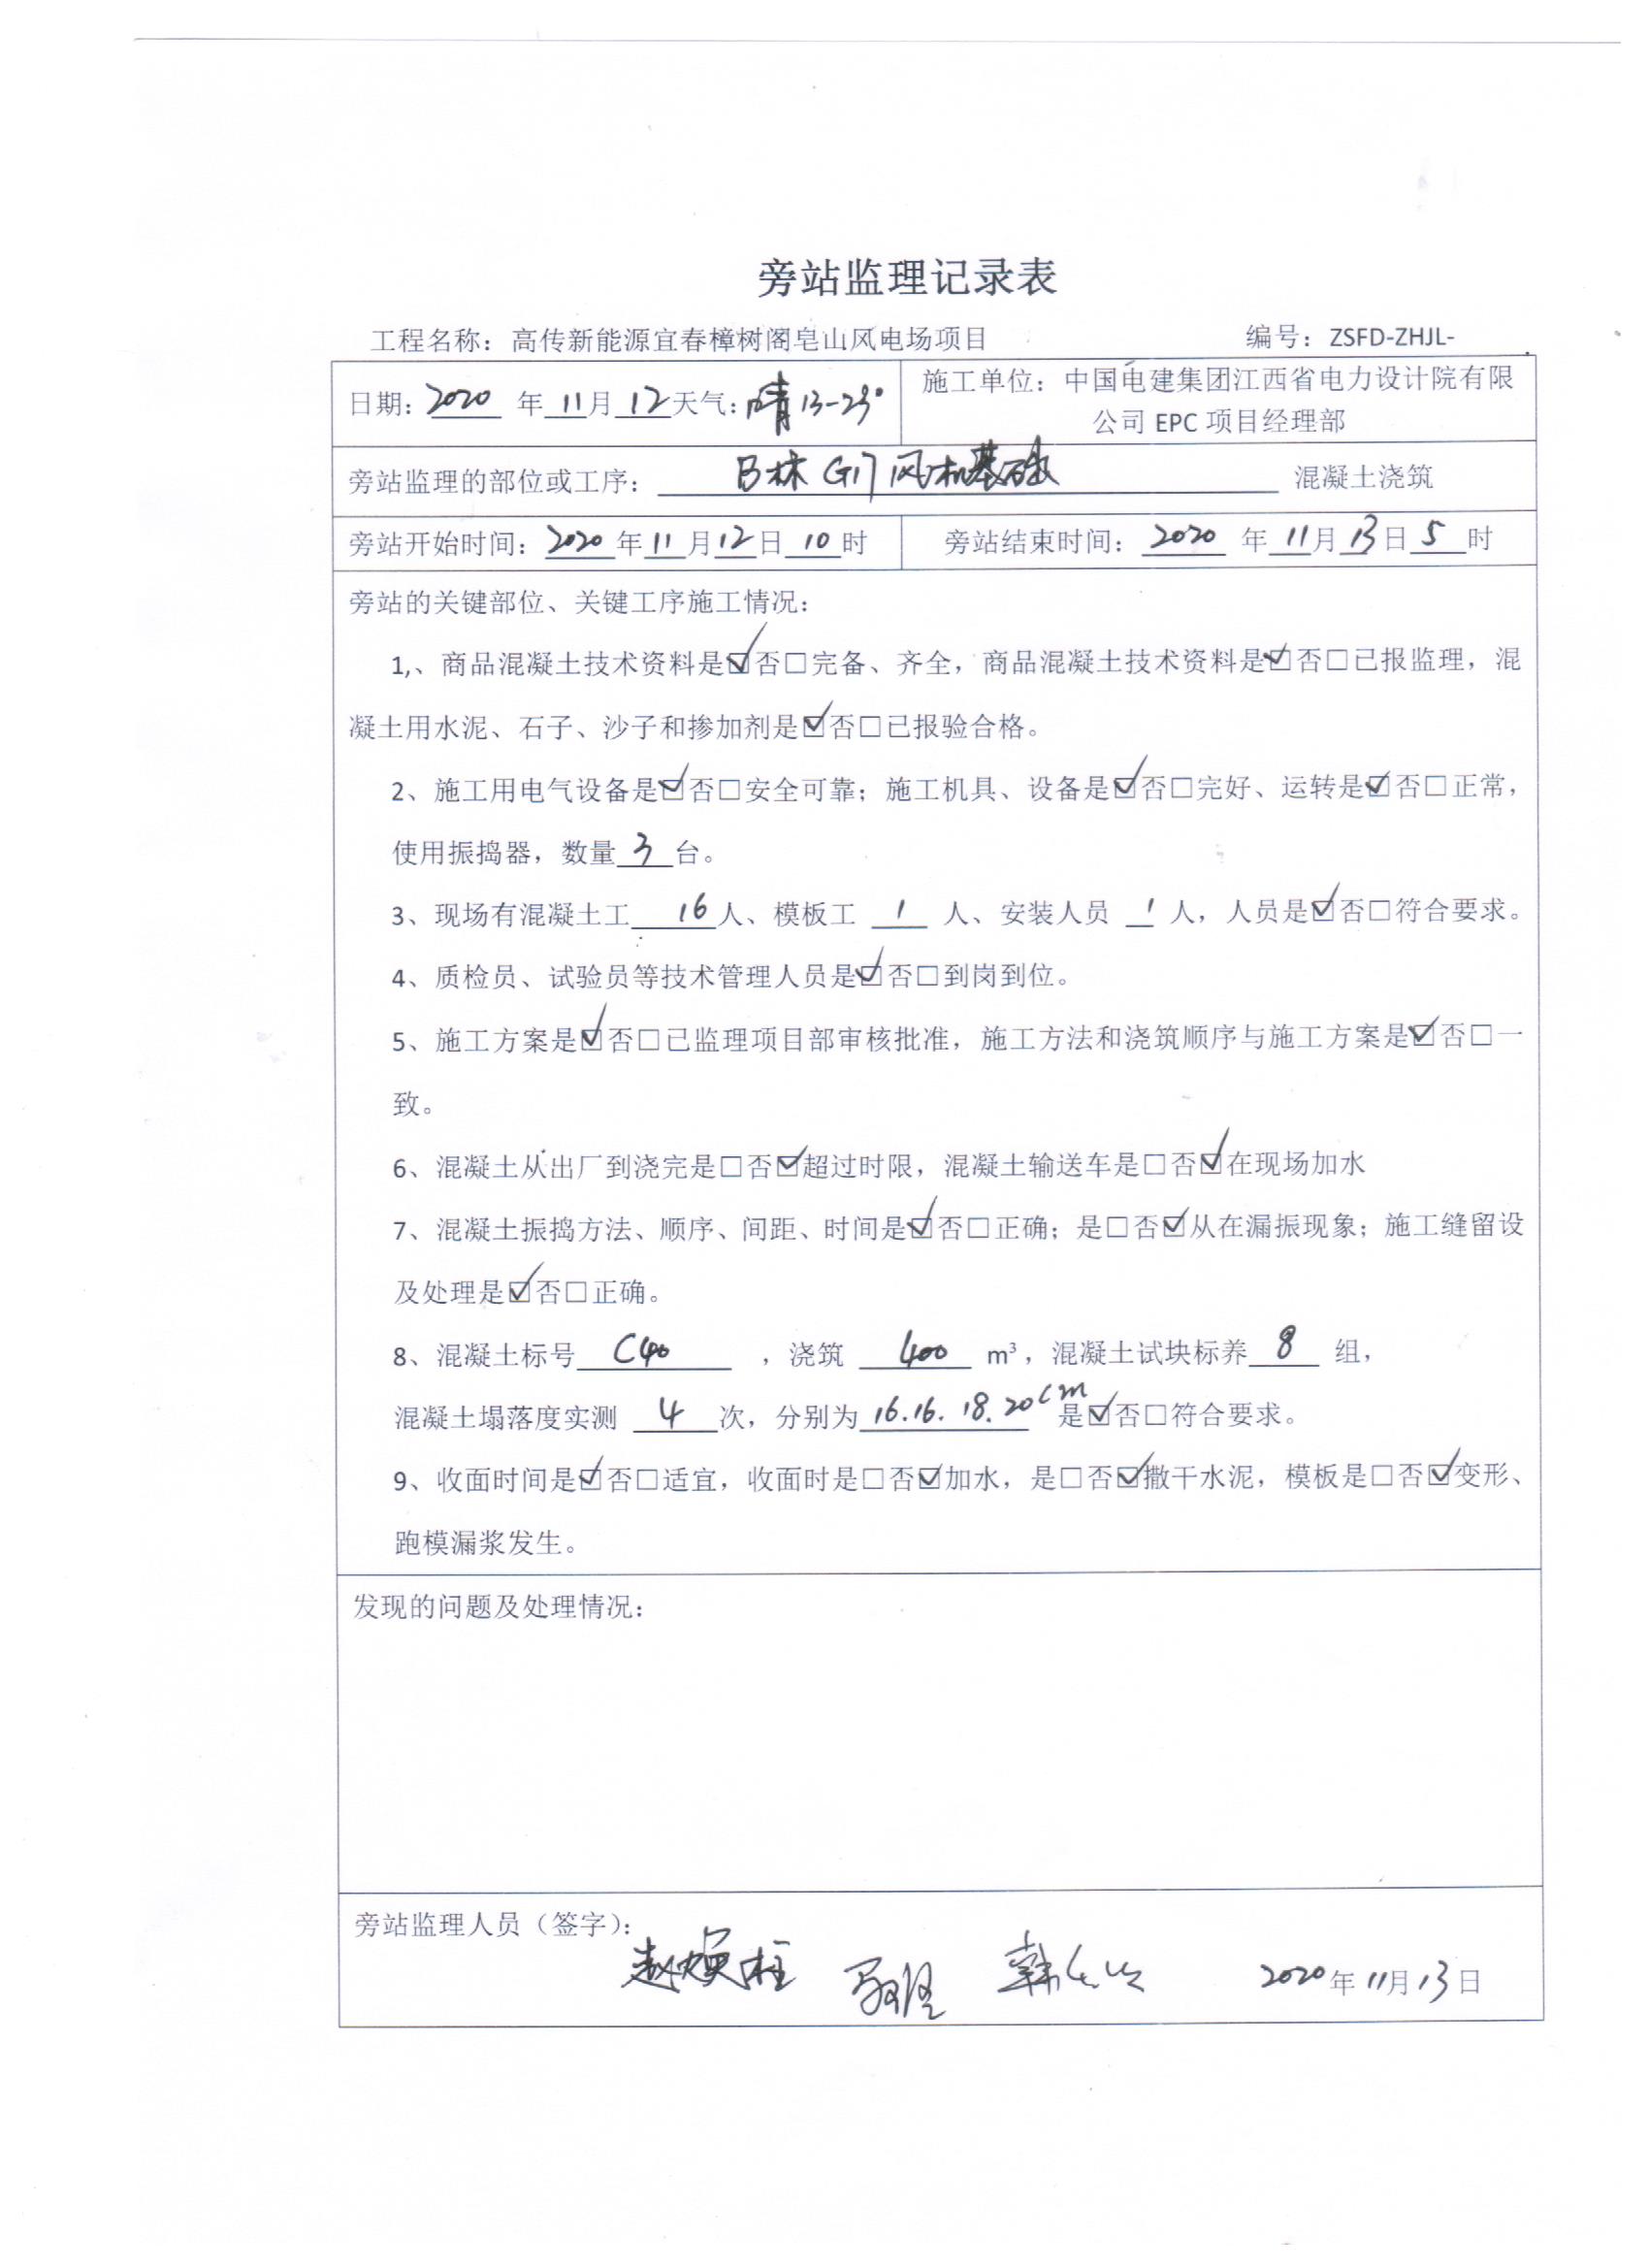 旁站监理记录表
工程名称：高传新能源宜春樟树阁皂山风电场项目 编号：ZSFD-ZHJL-
日期：2020 年 11 月 12 天气：晴 13-23° 施工单位：中国电建集团江西省电力设计院有限
公司 EPC 项目经理部
旁站监理的部位或工序： G17 风机基础 混凝土浇筑
旁站开始时间：2020 年 11 月 12 日 10 时 旁站结束时间：2020 年 11 月 13 日 5 时
旁站的关键部位、关键工序施工情况：
1,、商品混凝土技术资料是☑否□完备、齐全，商品混凝土技术资料是☑否□已报监理，混
凝土用水泥、石子、沙子和掺加剂是☑否□已报验合格。
2、施工用电气设备是☑否□安全可靠；施工机具、设备是☑否□完好、运转是☑否□正常，
使用振捣器，数量 3 台。
3、现场有混凝土工 16 人、模板工 1 人、安装人员 1 人，人员是☑否□符合要求。
4、质检员、试验员等技术管理人员是☑否□到岗到位。
5、施工方案是☑否□已监理项目部审核批准，施工方法和浇筑顺序与施工方案是☑否□一
致。
6、混凝土从出厂到浇完是□否☑超过时限，混凝土输送车是□否☑在现场加水
7、混凝土振捣方法、顺序、间距、时间是☑否□正确；是□否☑从在漏振现象；施工缝留设
及处理是☑否□正确。
8、混凝土标号 C40 ，浇筑 400 m³，混凝土试块标养 8 组，
混凝土塌落度实测 4 次，分别为 16.16.18.20cm 是☑否□符合要求。
9、收面时间是☑否□适宜，收面时是□否☑加水，是□否☑撒干水泥，模板是□否☑变形、
跑模漏浆发生。
发现的问题及处理情况：
旁站监理人员（签字）：
赵焕柱 2020 年 11 月 13 日